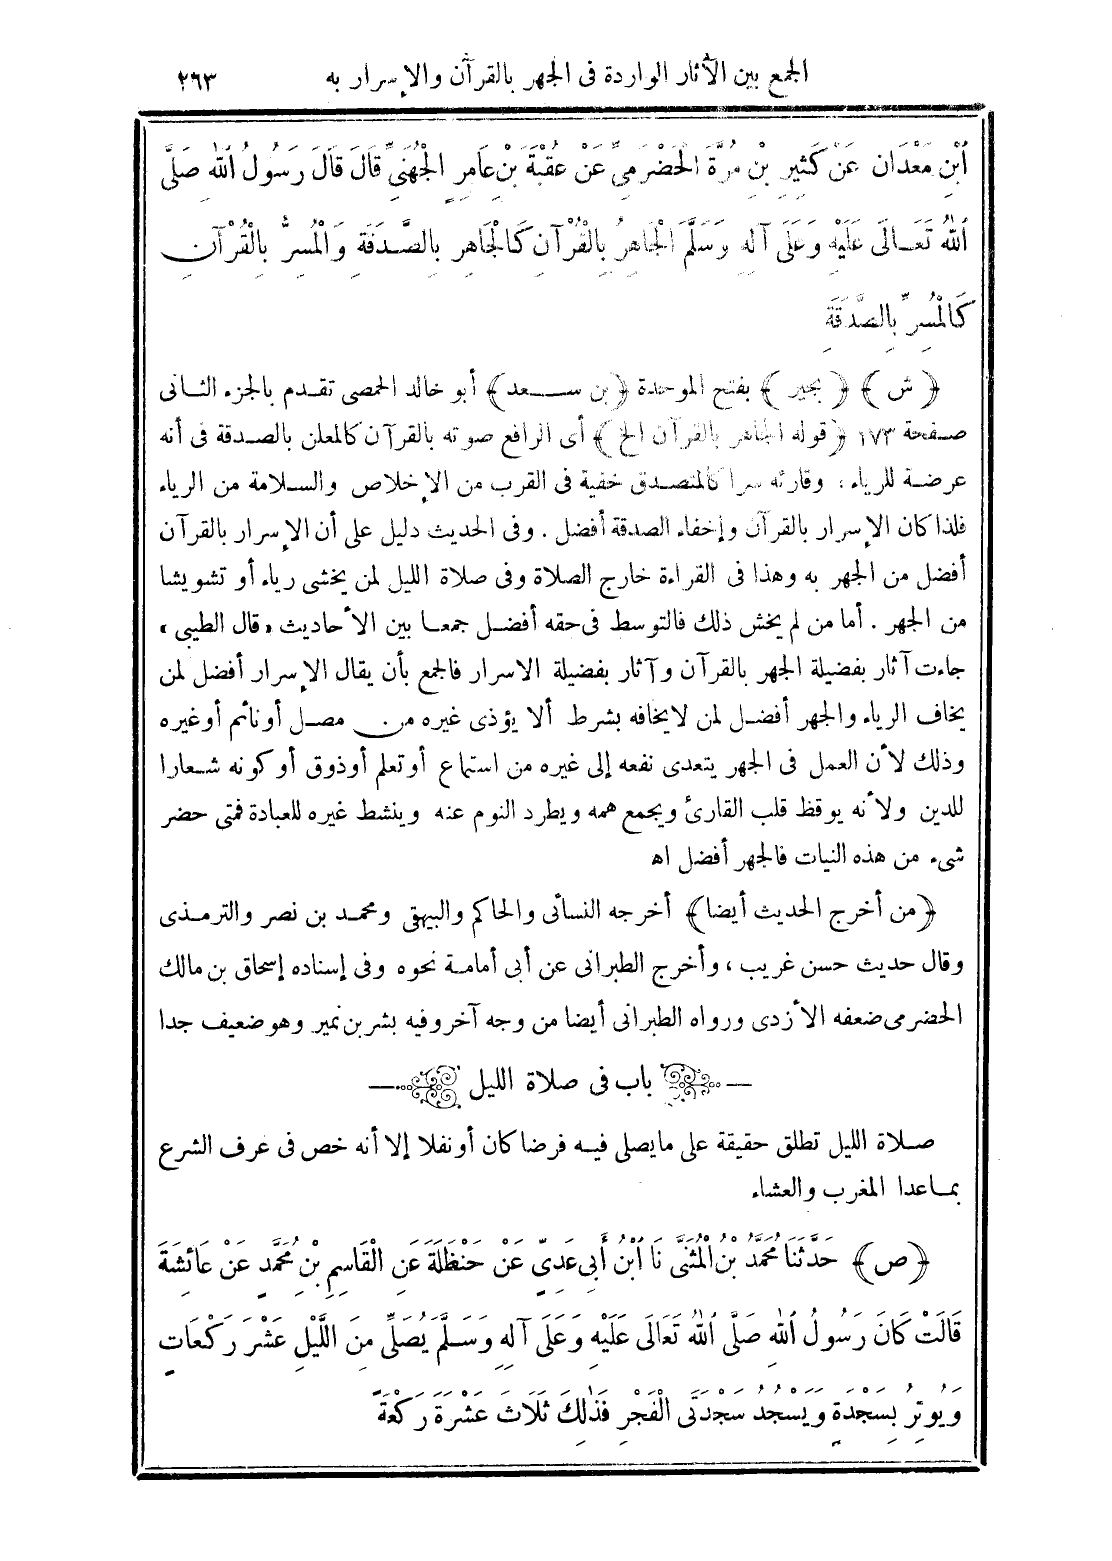 الجمع بين الآثار الواردة فى الجهر بالقرآن والإسرار به ٢٦٣
ٱبْنِ مَعْدَان عَنْ كَثِيرِ بْنِ مُرَّةَ الْحَضْرَمِيِّ عَنْ عُقْبَةَ بْنِ عَامِرٍ الْجُهَنِيِّ قَالَ قَالَ رَسُولُ ٱللهِ صَلَّى
ٱللهُ تَعَـالَى عَلَيْهِ وَعَلَى آلِهِ وَسَلَّمَ الْجَاهِرُ بِالْقُرْآنِ كَالْجَاهِرِ بِالصَّدَقَةِ وَالْمُسِرُّ بِالْقُرْآنِ
كَالْمُسِرِّ بِالصَّدَقَةِ
﴿ش﴾ ﴿بحير﴾ بفتح الموحدة ﴿بن ســعد﴾ أبو خالد الحمصى تقـدم بالجزء الثـانى
صـفحة ١٧٣ ﴿قوله الجاهر بالقرآن الخ﴾ أى الرافع صوته بالقرآن كالمعلن بالصـدقة فى أنه
عرضـة للرياء، وقارئه سرا كالمتصدق خفية فى القرب من الإخلاص والسـلامة من الرياء
فلذا كان الإسرار بالقرآن وإخفاء الصدقة أفضل . وفى الحديث دليل على أن الإسرار بالقرآن
أفضل من الجهر به وهذا فى القراءة خارج الصلاة وفى صلاة الليل لمن يخشى رياء أو تشويشا
من الجهر . أما من لم يخش ذلك فالتوسط فى حقه أفضـل جمعـا بين الأحاديث «قال الطيبى»
جاءت آثار بفضيلة الجهر بالقرآن وآثار بفضيلة الاسرار فالجمع بأن يقال الإسرار أفضل لمن
يخاف الرياء والجهر أفضـل لمن لايخافه بشرط ألا يؤذى غيره من مصـل أو نائم أو غيره
وذلك لأن العمل فى الجهر يتعدى نفعه إلى غيره من استماع أو تعلم أو ذوق أو كونه شـعارا
للدين ولأنه يوقظ قلب القارئ ويجمع همه ويطرد النوم عنه وينشط غيره للعبادة فمتى حضر
شىء من هذه النيات فالجهر أفضل اه
﴿من أخرج الحديث أيضا﴾ أخرجه النسائى والحاكم والبيهقى ومحمـد بن نصر والترمـذى
وقال حديث حسن غريب، وأخرج الطبرانى عن أبى أمامـة نحوه وفى إسناده إسحاق بن مالك
الحضرمى ضعفه الأزدى ورواه الطبرانى أيضا من وجه آخر وفيه بشر بن نمير وهو ضعيف جدا
باب فى صلاة الليل
صـلاة الليل تطلق حقيقة على مايصلى فيـه فرضا كان أو نفلا إلا أنه خص فى عرف الشرع
بمـاعدا المغرب والعشاء
﴿ص﴾ حَدَّثَنَا مُحَمَّدُ بْنُ الْمُثَنَّى نَا ٱبْنُ أَبِى عَدِىٍّ عَنْ حَنْظَلَةَ عَنِ الْقَاسِمِ بْنِ مُحَمَّدٍ عَنْ عَائِشَةَ
قَالَتْ كَانَ رَسُولُ ٱللهِ صَلَّى ٱللهُ تَعَالَى عَلَيْهِ وَعَلَى آلِهِ وَسَـلَّمَ يُصَلِّى مِنَ اللَّيْلِ عَشْرَ رَكَعَاتٍ
وَيُوتِرُ بِسَجْدَةٍ وَيَسْجُدُ سَجْدَتَى الْفَجْرِ فَذٰلِكَ ثَلَاثَ عَشْرَةَ رَكْعَةً